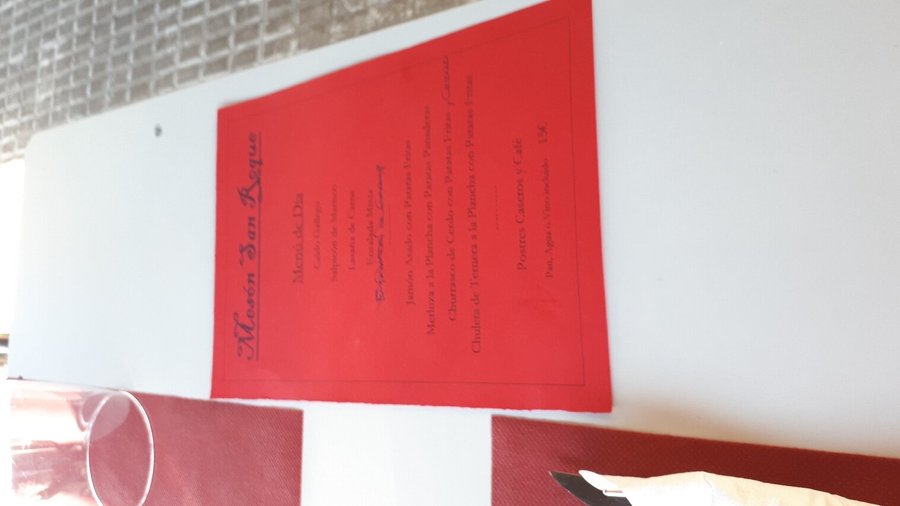 Mesón San Roque
Menú de Día
Caldo Gallego
Salpicón de Marisco
Lasaña de Carne
Ensalada Mixta
Jamón Asado con Patatas Fritas
Merluza a la Plancha con Patatas Panaderas
Churrasco de Cerdo con Patatas Fritas y
Chuleta de Ternera a la Plancha con Patatas Fritas
..........
Postres Caseros y Café
Pan, Agua o Vino incluido 15€